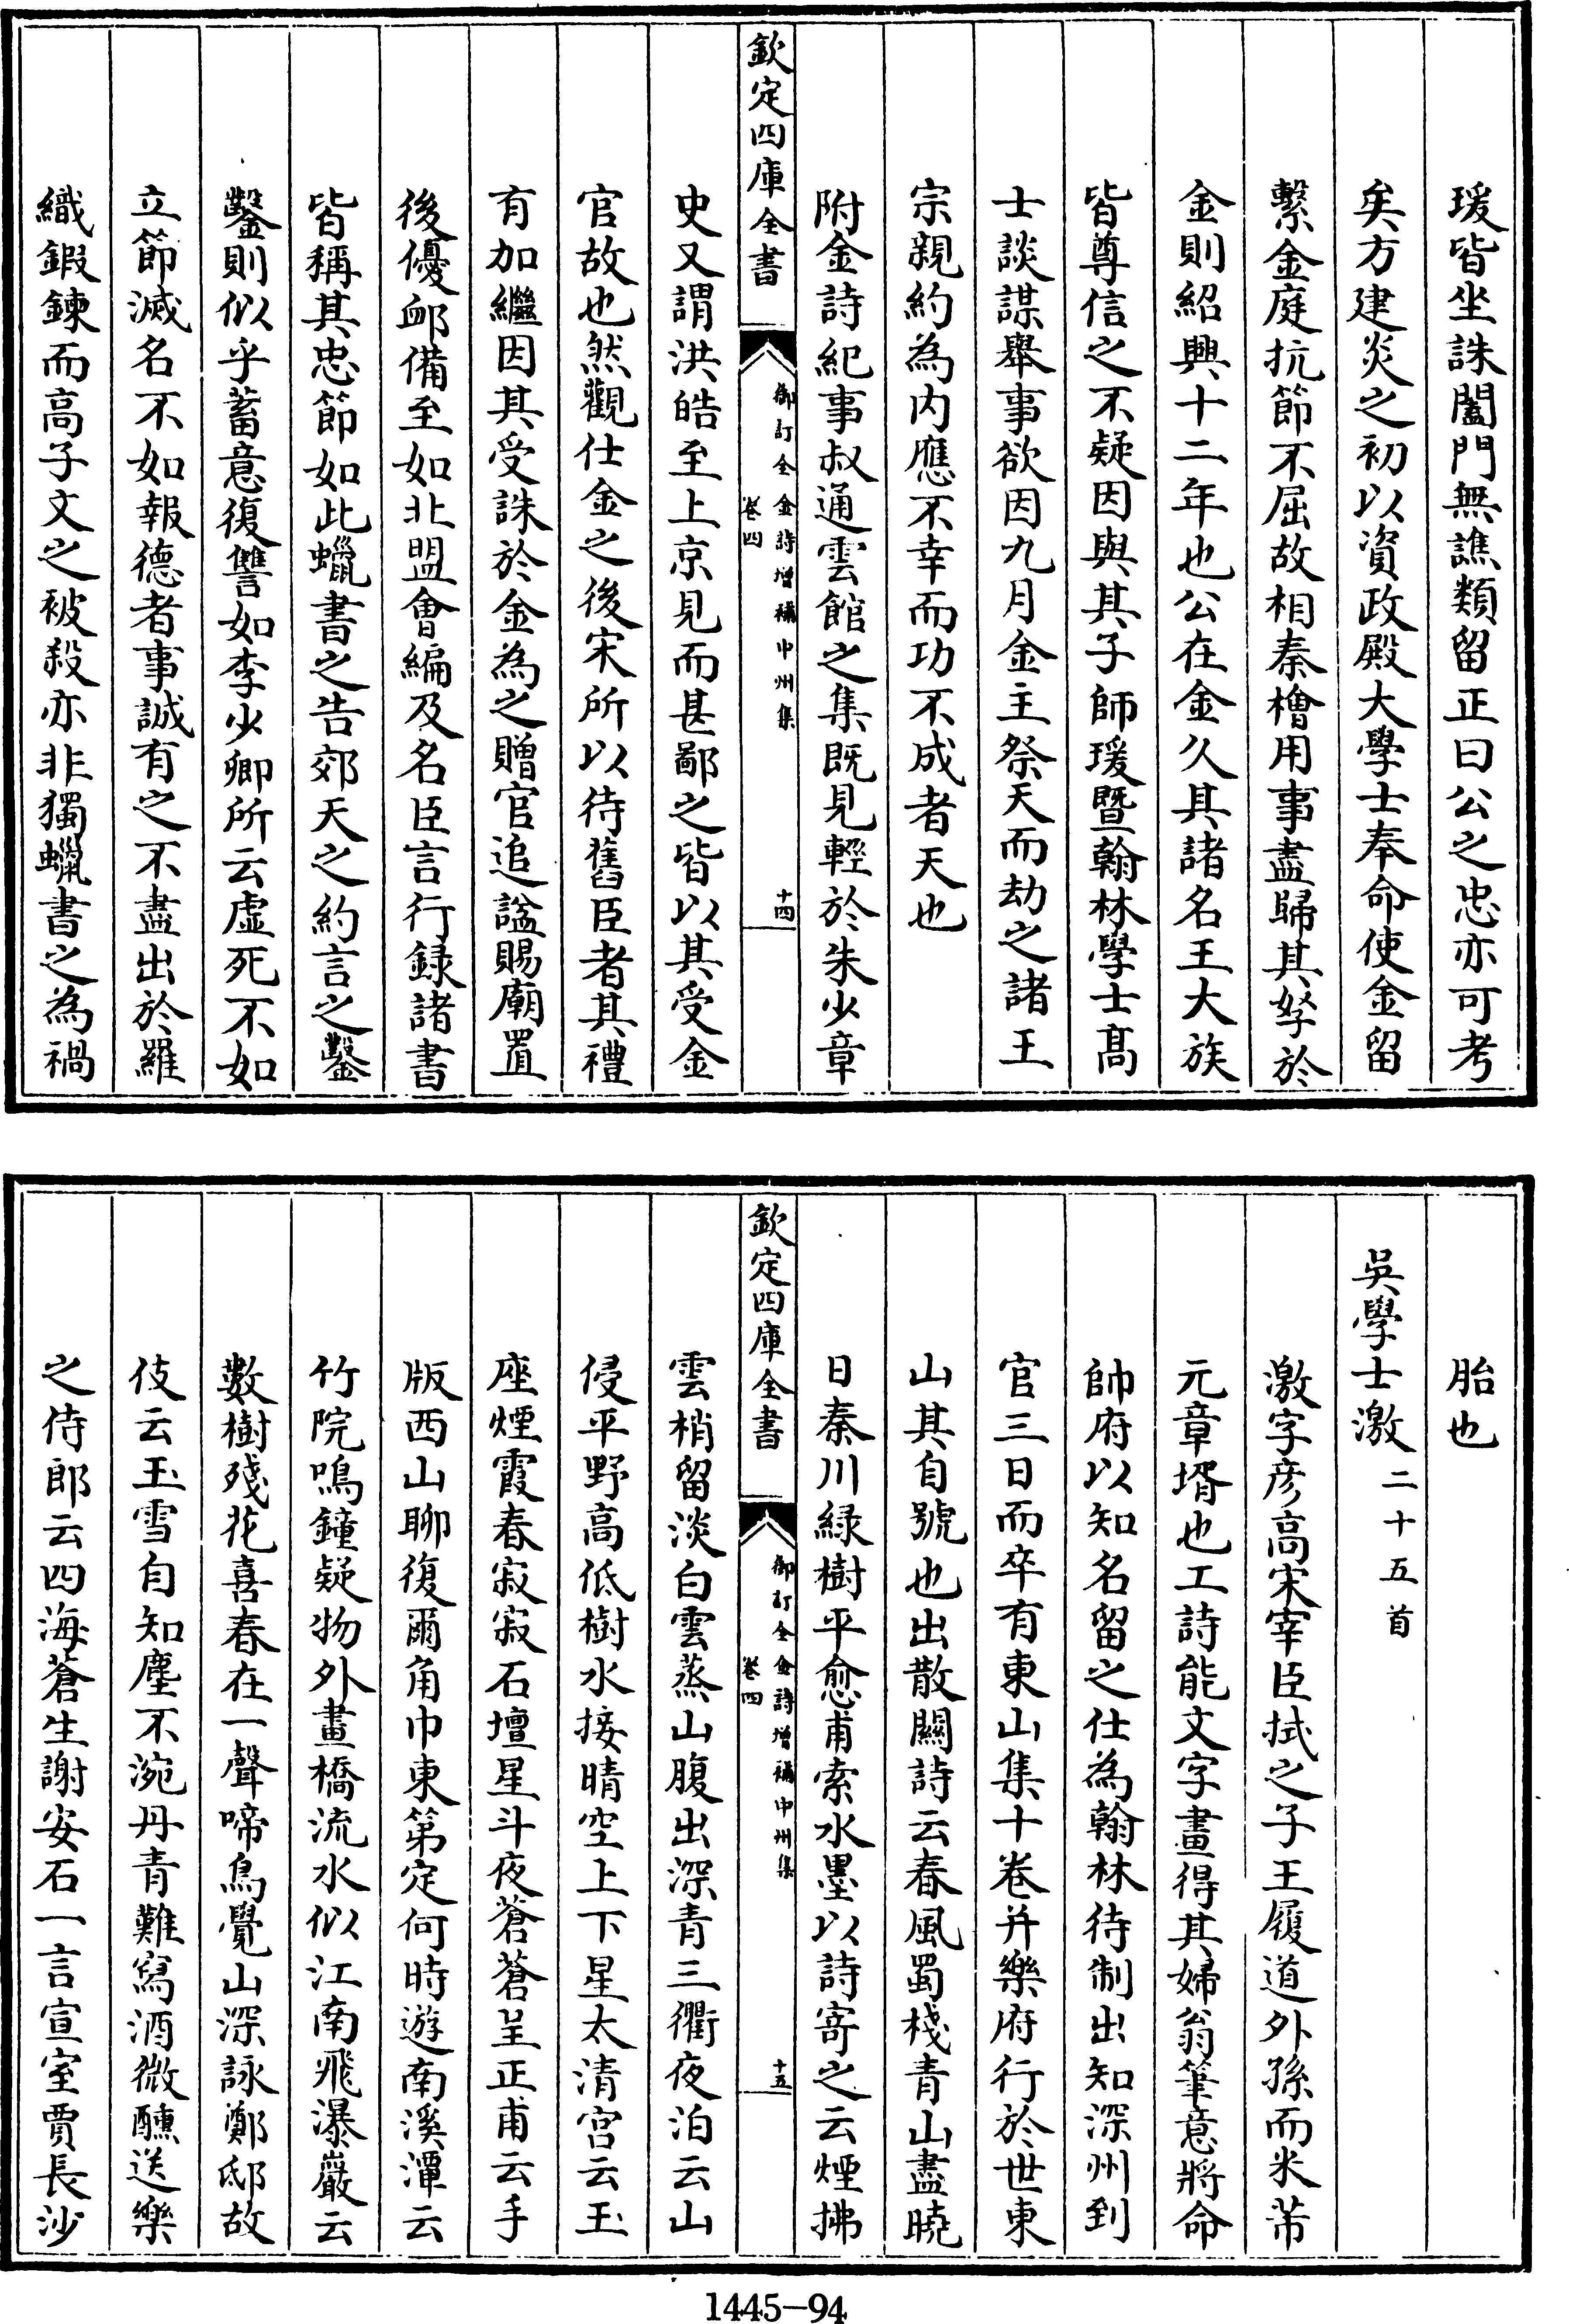 瑗皆坐誅闔門無譙類留正曰公之忠亦可考
矣方建炎之初以資政殿大學士奉命使金留
繫金庭抗節不屈故相秦檜用事盡歸其孥於
金則紹興十二年也公在金久其諸名王大族
皆尊信之不疑因與其子師瑗暨翰林學士髙
士談謀舉事欲因九月金主祭天而劫之諸王
宗親約為内應不幸而功不成者天也
附金詩紀事叔通雲館之集既見輕於朱少章
欽定四庫全書
御訂全金詩增補中州集
卷四
十四
史又謂洪皓至上京見而甚鄙之皆以其受金
官故也然觀仕金之後宋所以待舊臣者其禮
有加繼因其受誅於金為之贈官追諡賜廟置
後優卹備至如北盟會編及名臣言行録諸書
皆稱其忠節如此蠟書之告郊天之約言之鑿
鑿則似乎蓄意復讐如李少卿所云虛死不如
立節滅名不如報德者事誠有之不盡出於羅
織鍛鍊而高子文之被殺亦非獨蠟書之為禍
胎也
吳學士激二十五首
激字彦高宋宰臣拭之子王履道外孫而米芾
元章壻也工詩能文字畫得其婦翁筆意將命
帥府以知名留之仕為翰林待制出知深州到
官三日而卒有東山集十卷并樂府行於世東
山其自號也出散闗詩云春風蜀棧青山盡曉
日秦川緑樹平愈甫索水墨以詩寄之云煙拂
欽定四庫全書
御訂全金詩增補中州集
卷四
十五
雲梢留淡白雲蒸山腹出深青三衢夜泊云山
侵平野高低樹水接晴空上下星太清宫云玉
座煙霞春寂寂石壇星斗夜蒼蒼呈正甫云手
版西山聊復爾角巾東第定何時遊南溪潭云
竹院鳴鐘疑物外畫橋流水似江南飛瀑巖云
數樹殘花喜春在一聲啼鳥覺山深詠鄭邸故
伎云玉雪自知塵不涴丹青難寫酒微醺送樂
之侍郎云四海蒼生謝安石一言宣室賈長沙
1445-94